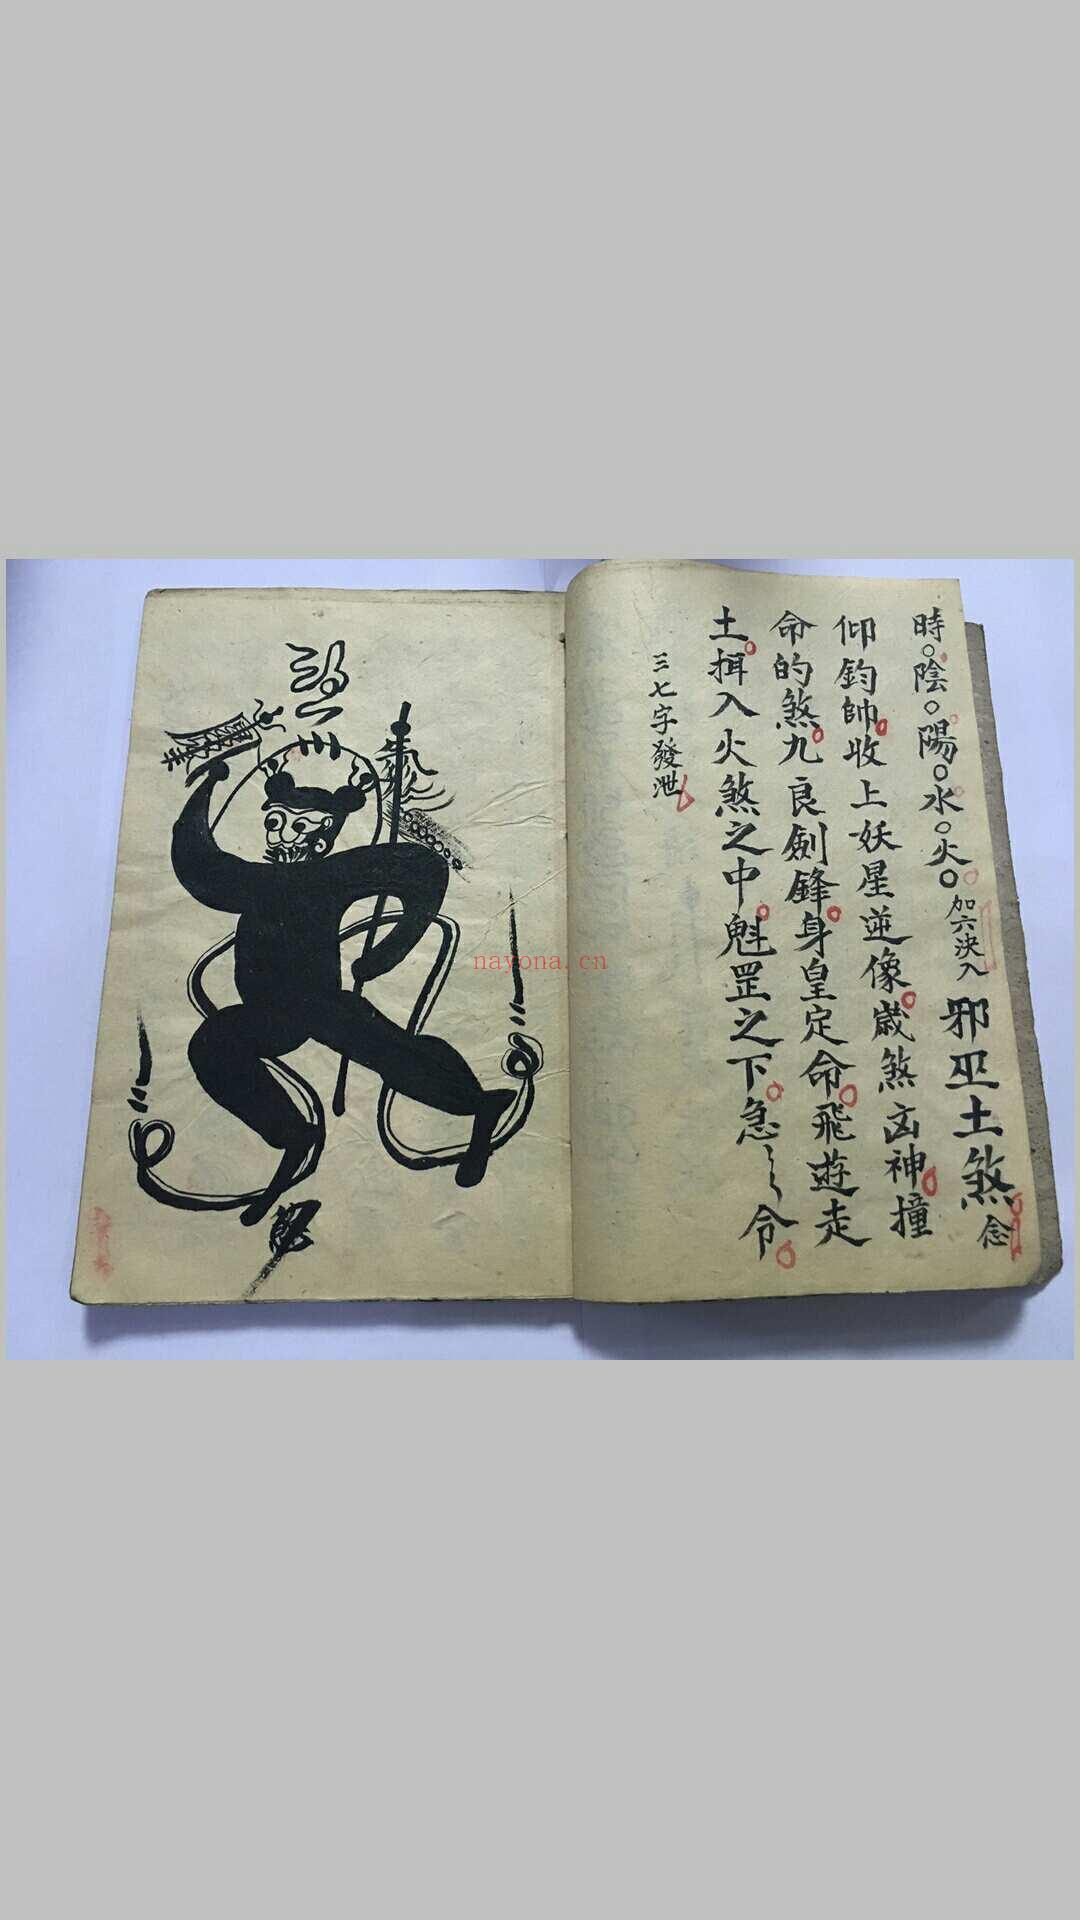 時陰陽水火加六決入邪巫土煞念
仰鈞帥收上妖星逆像歲煞凶神撞
命的煞九良劍鋒身皇定命飛遊走
土揖入火煞之中魁罡之下急〻令
三七字發泄
nayona.cn